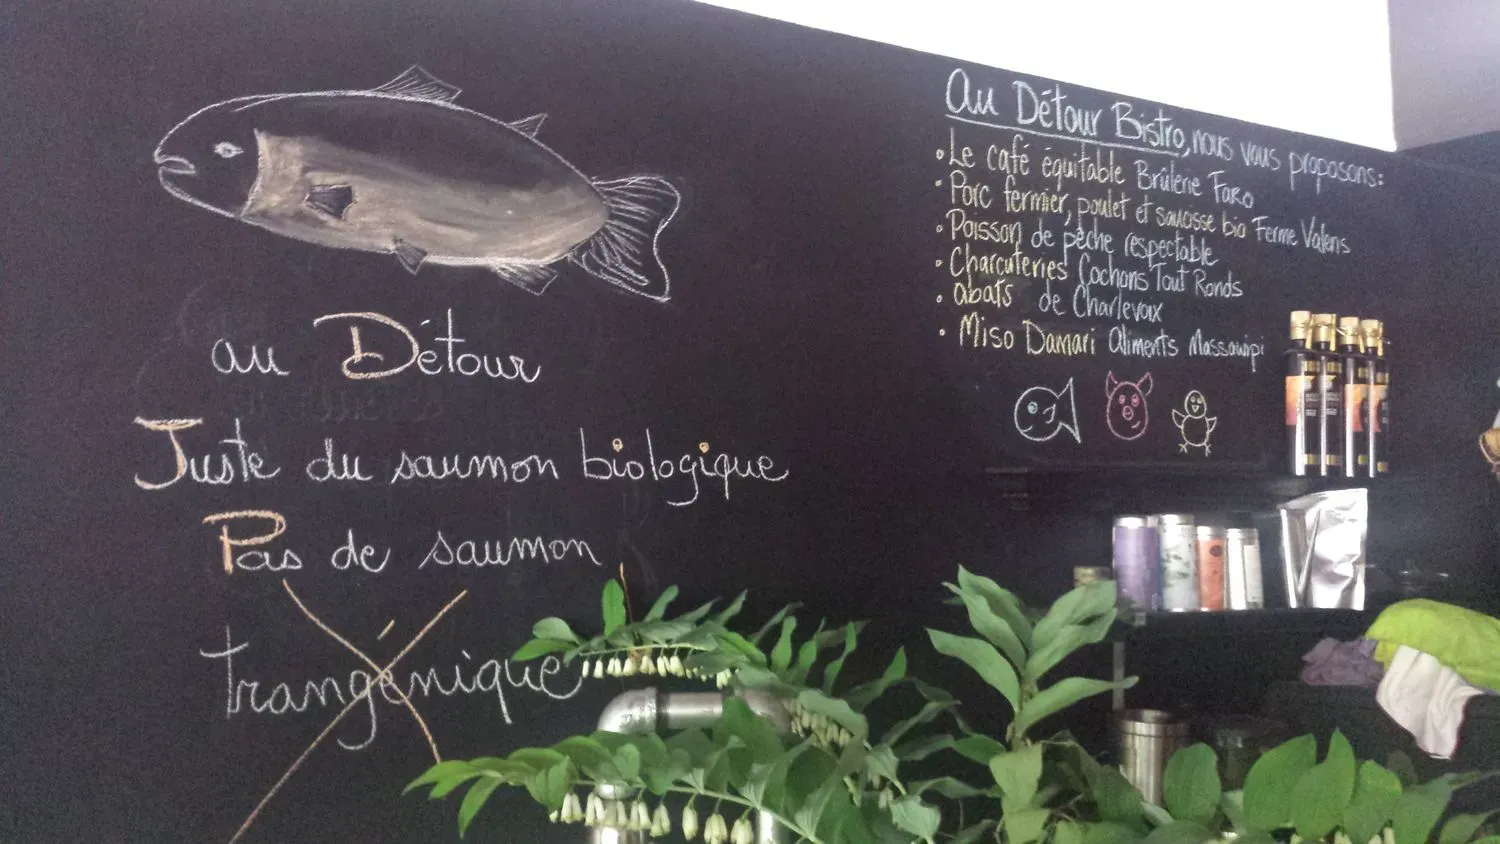 au Détour
Juste du saumon biologique
Pas de saumon
trangénique
Au Détour Bistro, nous vous proposons:
• Le café équitable Brûlerie Faro
• Porc fermier, poulet et saucisse bio Ferme Valens
• Poisson de pêche respectable
• Charcuteries Cochons Tout Ronds
• abats de Charlevoix
• Miso Damari Aliments Massawipi